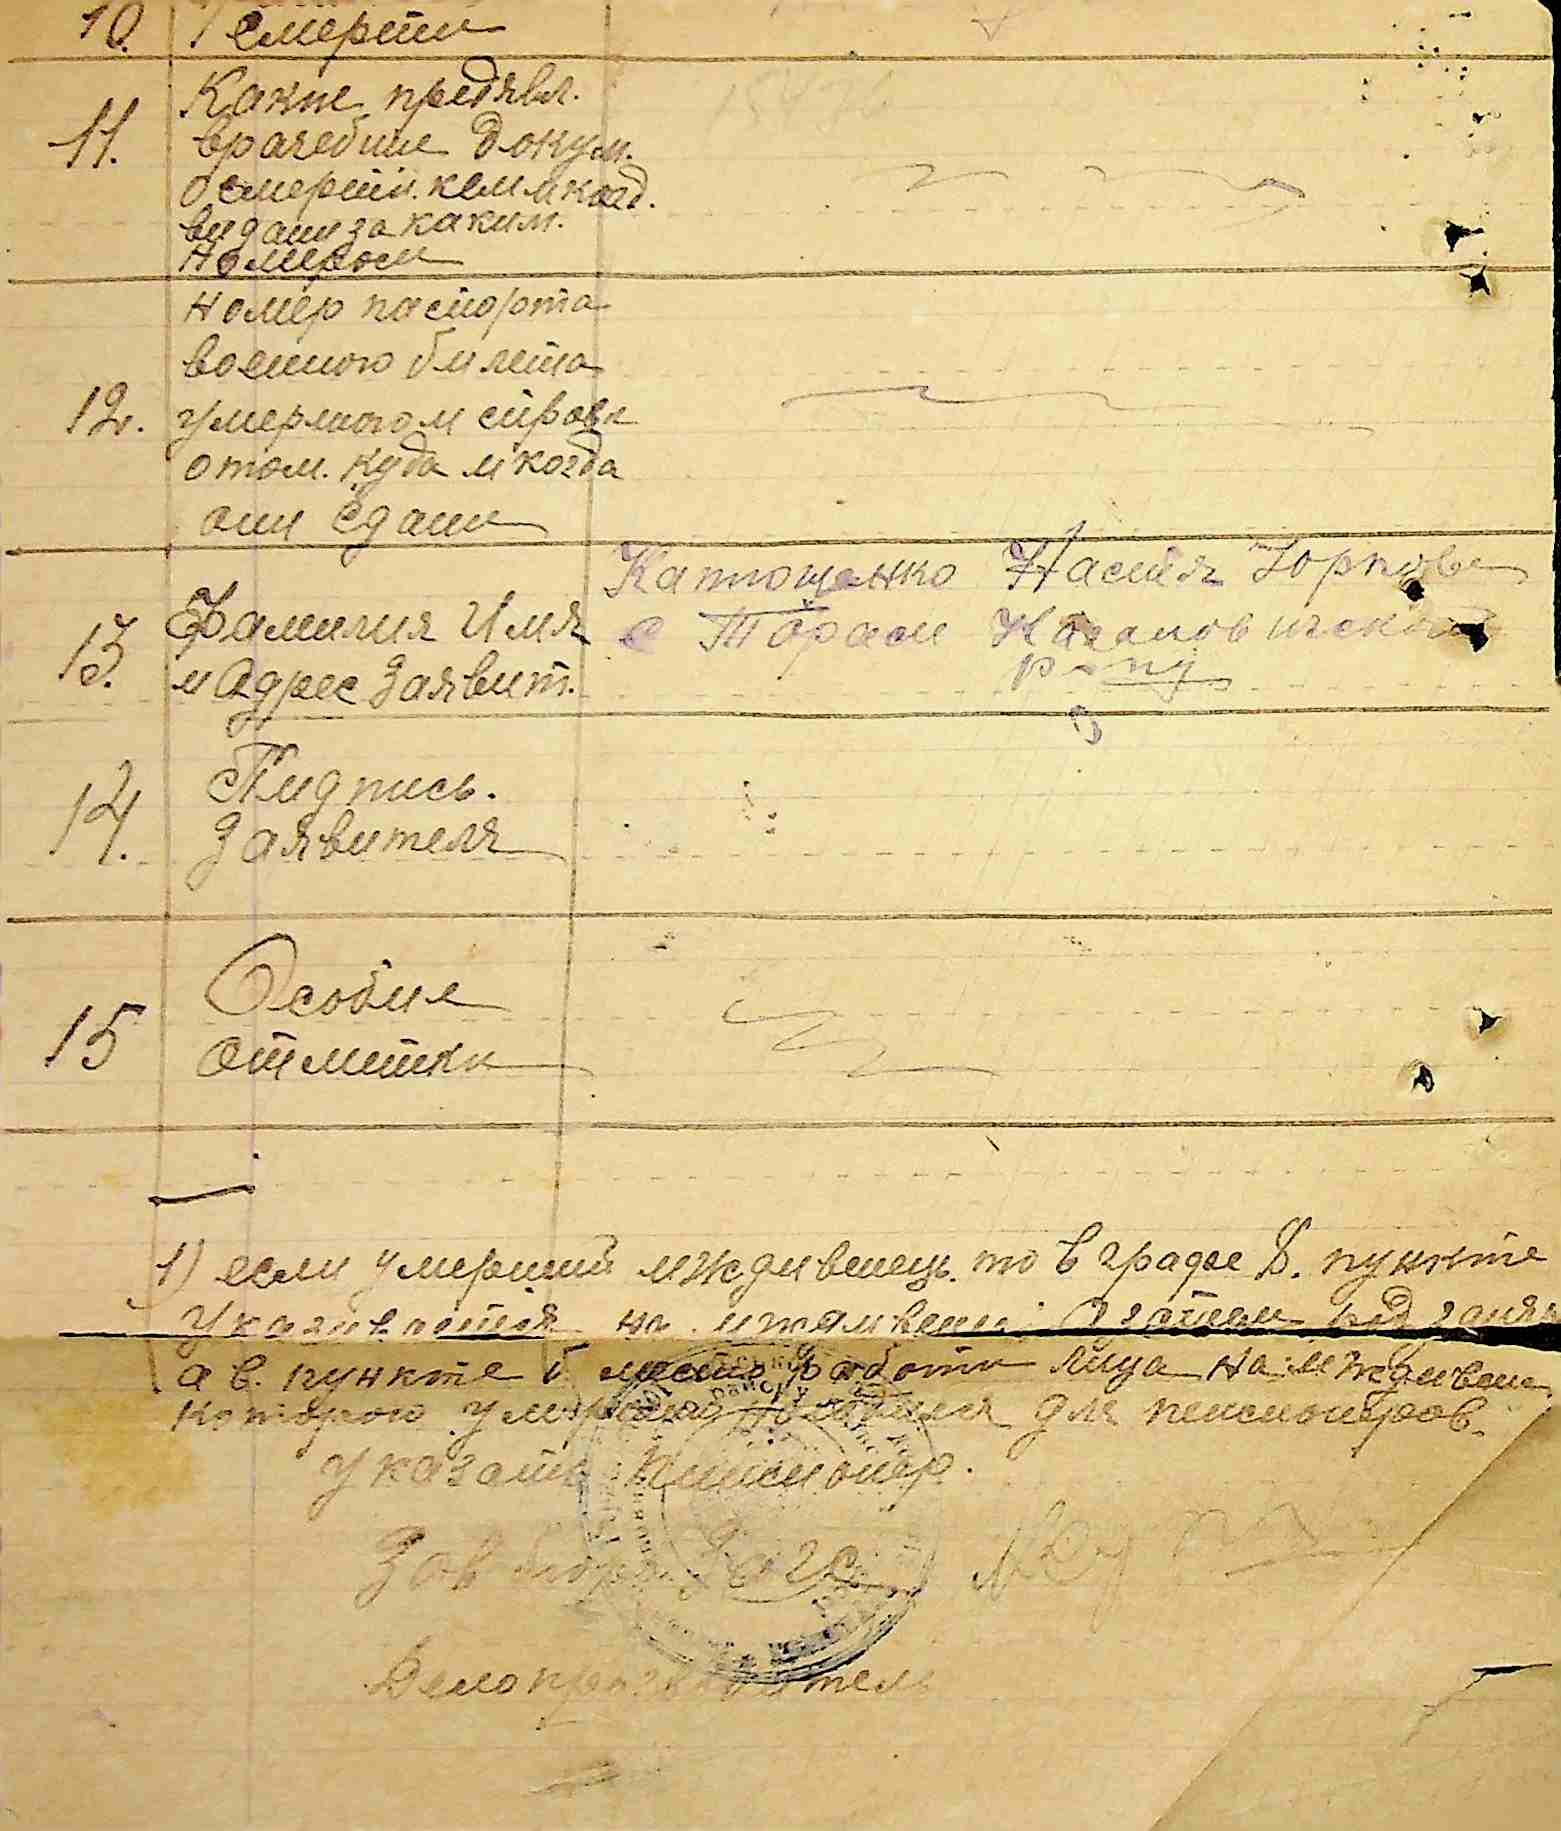 10. смерти
Какие предявл.
11. врачебние докум.
о смерти. кем и когд.
видани за каким.
номером
номер паспорта
военного билета
12. умершого и справк
о том. куда и когда
они сдани
Катющенко Настя
13. Фамилия Имя с Тараси
и Адрес Заявит. р-ну
14. Пидпись.
Заявителя
15 Особие
отметки
1) если умерший иждивенец. то в графе 8. пункте
указивается на иждивени
а в. пункте б место работи лица на иждивен
которого умерший находился для пенсионеров.
указать пенсионер.
Зав бюро Загс
Делопроизводитель